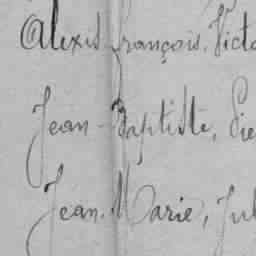 Alexis François, Victo
Jean-Baptiste, Pie
Jean-Marie, Jul